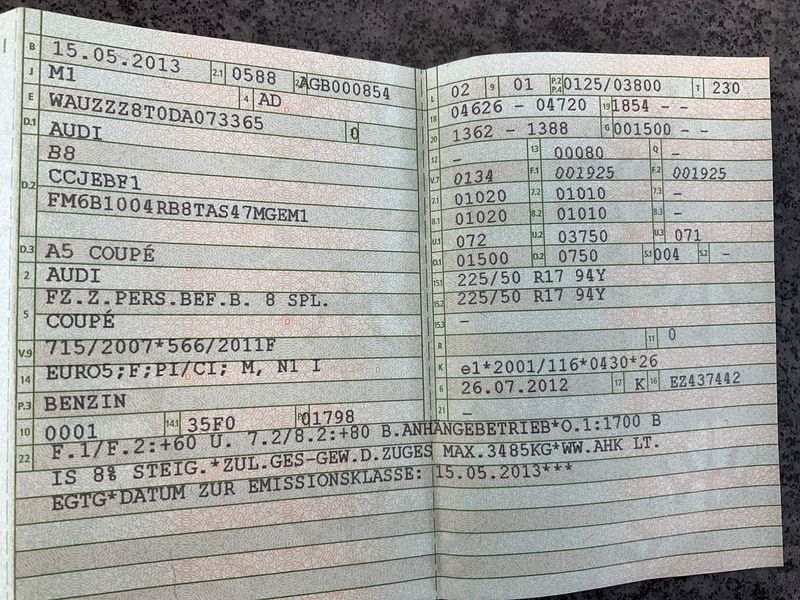 B 15.05.2013 2.1 0588 2.2 AGB000854
J M1 4 AD
E WAUZZZ8T0DA073365 0
D.1 AUDI
B8
D.2 CCJEBF1
FM6B1004RB8TAS47MGEM1
D.3 A5 COUPÉ
2 AUDI
5 FZ.Z.PERS.BEF.B. 8 SPL.
COUPÉ
V.9 715/2007*566/2011F
14 EURO5;F;PI/CI; M, N1 I
P.3 BENZIN
10 0001 14.1 35F0 P.1 01798
L 02 9 01 P.2 P.4 0125/03800 T 230
18 04626 - 04720 19 1854 - -
20 1362 - 1388 G 001500 - -
12 - 13 00080 Q -
V.7 0134 F.1 001925 F.2 001925
7.1 01020 7.2 01010 7.3 -
8.1 01020 8.2 01010 8.3 -
U.1 072 U.2 03750 U.3 071
O.1 01500 O.2 0750 S.1 004 S.2 -
15.1 225/50 R17 94Y
15.2 225/50 R17 94Y
15.3 -
R 11 0
K e1*2001/116*0430*26
6 26.07.2012 17 K 16 EZ437442
21 -
22 F.1/F.2:+60 U. 7.2/8.2:+80 B.ANHÄNGEBETRIEB*O.1:1700 B
IS 8% STEIG.*ZUL.GES-GEW.D.ZUGES MAX.3485KG*WW.AHK LT.
EGTG*DATUM ZUR EMISSIONSKLASSE: 15.05.2013***